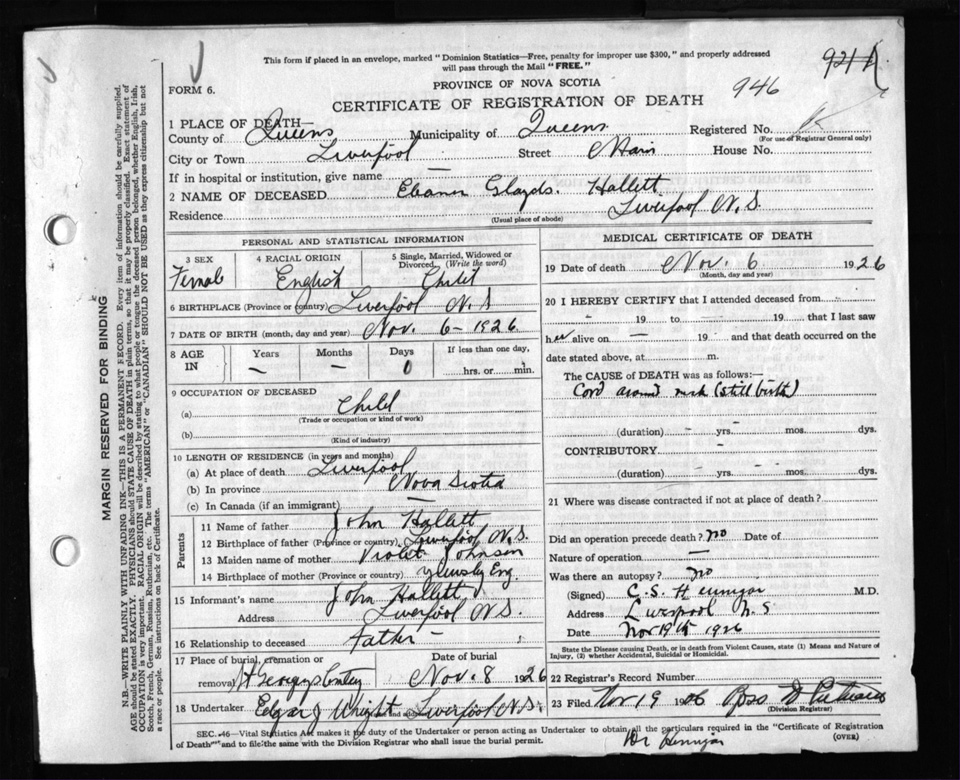 This form if placed in an envelope, marked "Dominion Statistics—Free, penalty for improper use $300," and properly addressed
will pass through the Mail "FREE."
921
946
FORM 6.
PROVINCE OF NOVA SCOTIA
CERTIFICATE OF REGISTRATION OF DEATH
1 PLACE OF DEATH—
County of Queens Municipality of Queens Registered No.
(For use of Registrar General only)
City or Town Liverpool Street Main House No.
If in hospital or institution, give name —
2 NAME OF DECEASED Hallett
Residence Liverpool N.S.
(Usual place of abode)
MARGIN RESERVED FOR BINDING
N.B.—WRITE PLAINLY WITH UNFADING INK—THIS IS A PERMANENT RECORD. Every item of information should be carefully supplied.
AGE should be stated EXACTLY. PHYSICIANS should STATE CAUSE OF DEATH in plain terms, so that it may be properly classified. Exact statement of
OCCUPATION is very important. RACIAL ORIGIN will be described by stating to what people or tongue the deceased person belonged, whether English, Irish,
Scotch, French, German, Russian, Ruthenian, etc. The terms "AMERICAN" or "CANADIAN" SHOULD NOT BE USED as they express citizenship but not
a race or people. See instructions on back of Certificate.
PERSONAL AND STATISTICAL INFORMATION
3 SEX
4 RACIAL ORIGIN
5 Single, Married, Widowed or
Divorced. (Write the word)
Female English Child
6 BIRTHPLACE (Province or Country) Liverpool N.S
7 DATE OF BIRTH (month, day and year) Nov. 6 - 1926.
8 AGE IN
Years Months Days If less than one day,
— — 0 hrs. or min.
9 OCCUPATION OF DECEASED
(a) Child
(Trade or occupation or kind of work)
(b)
(Kind of industry)
10 LENGTH OF RESIDENCE (in years and months)
(a) At place of death Liverpool
(b) In province Nova Scotia
(c) In Canada (if an immigrant) —
Parents
11 Name of father John Hallett
12 Birthplace of father (Province or country) Liverpool N.S.
13 Maiden name of mother Violet Johnson
14 Birthplace of mother (Province or country) Eng.
15 Informant's name John Hallett
Address Liverpool N.S.
16 Relationship to deceased Father -
17 Place of burial, cremation or Date of burial
removal Nov. 8 1926
18 Undertaker Edgar J Wright Liverpool N.S.
MEDICAL CERTIFICATE OF DEATH
19 Date of death Nov. 6 1926
(Month, day and year)
20 I HEREBY CERTIFY that I attended deceased from
19 to 19 that I last saw
her alive on — 19 and that death occurred on the
date stated above, at m.
The CAUSE OF DEATH was as follows:—
Cord around neck (still birth)
(duration) yrs. mos. dys.
CONTRIBUTORY
(duration) yrs. mos. dys.
21 Where was disease contracted if not at place of death?
Did an operation precede death? no Date of
Nature of operation —
Was there an autopsy? no
(Signed) C.S. Hennigar M.D.
Address Liverpool N.S
Date Nov 19th 1926
State the Disease causing Death, or in death from Violent Causes, state (1) Means and Nature of
Injury, (2) whether Accidental, Suicidal or Homicidal.
22 Registrar's Record Number
23 Filed Nov 19 1926
(Division Registrar)
SEC. 46—Vital Statistics Act makes it the duty of the Undertaker or person acting as Undertaker to obtain all the particulars required in the "Certificate of Registration
of Death" and to file the same with the Division Registrar who shall issue the burial permit.
(OVER)
Dr Hennigar